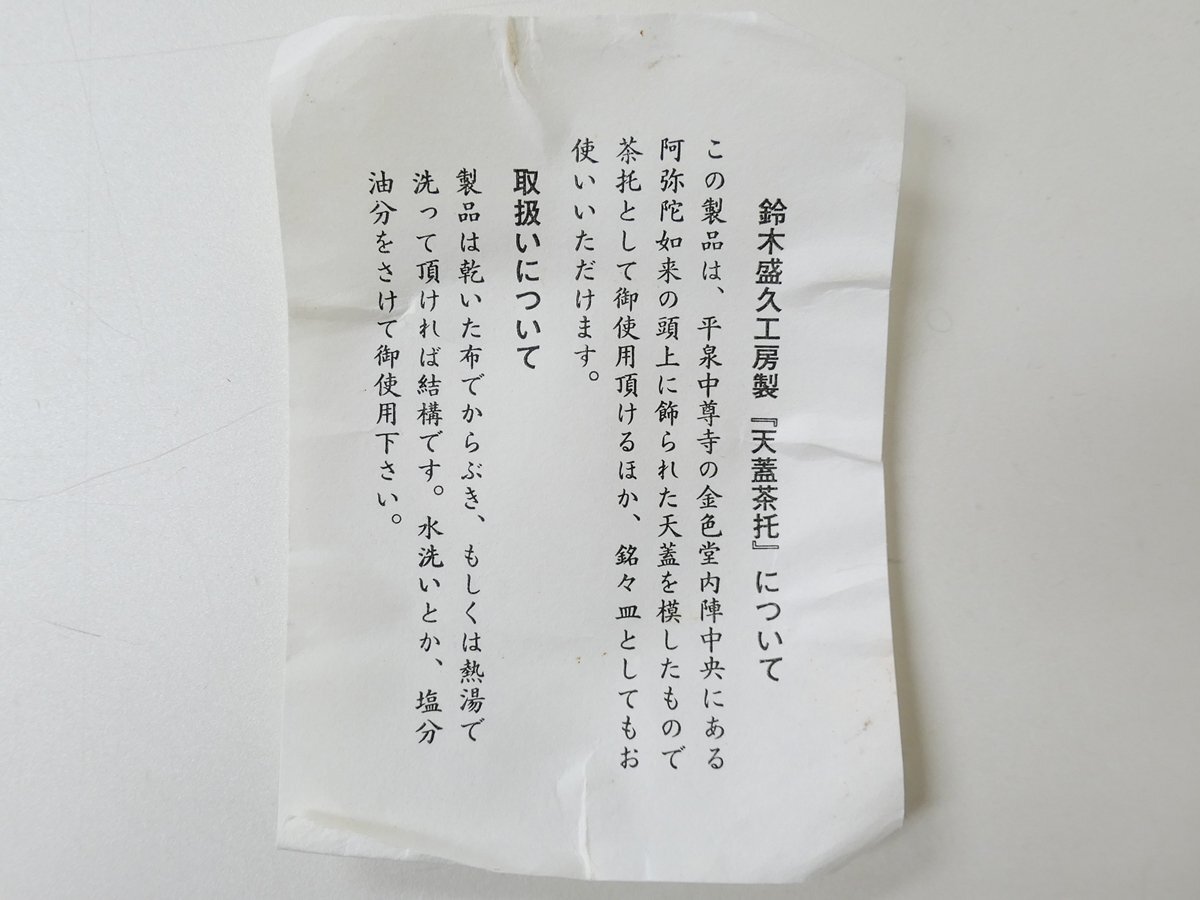 鈴木盛久工房製『天蓋茶托』について
この製品は、平泉中尊寺の金色堂内陣中央にある
阿弥陀如来の頭上に飾られた天蓋を模したもので
茶托として御使用頂けるほか、銘々皿としてもお
使いいただけます。
取扱いについて
製品は乾いた布でからぶき、もしくは熱湯で
洗って頂ければ結構です。水洗いとか、塩分
油分をさけて御使用下さい。